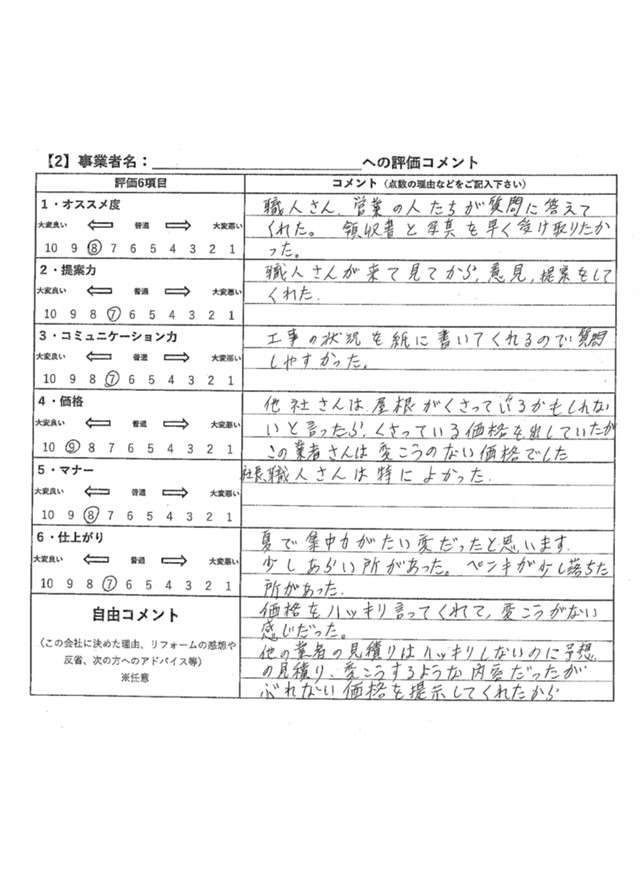 【2】事業者名： への評価コメント
評価6項目 コメント（点数の理由などをご記入下さい）
1・オススメ度
大変良い 普通 大変悪い
10 9 8 7 6 5 4 3 2 1
職人さん、営業の人たちが質問に答えて
くれた。 領収書と写真を早く受け取りたか
った。
2・提案力
大変良い 普通 大変悪い
10 9 8 7 6 5 4 3 2 1
職人さんが来て見てから、意見、提案をして
くれた.
3・コミュニケーション力
大変良い 普通 大変悪い
10 9 8 7 6 5 4 3 2 1
工事の状況を紙に書いてくれるので質問
しやすかった。
4・価格
大変良い 普通 大変悪い
10 9 8 7 6 5 4 3 2 1
他社さんは屋根がくさっているかもしれな
いと言ったら、くさっている価格を出していたが
この業者さんは変こうのない価格でした
5・マナー
大変良い 普通 大変悪い
10 9 8 7 6 5 4 3 2 1
社長、職人さんは特によかった.
6・仕上がり
大変良い 普通 大変悪い
10 9 8 7 6 5 4 3 2 1
夏で集中力がたい変だったと思います.
少しあらい所があった。ペンキが少し落ちた
所があった.
自由コメント
（この会社に決めた理由、リフォームの感想や
反省、次の方へのアドバイス等）
※任意
価格をハッキリ言ってくれて、変こうがない
感じだった。
他の業者の見積りはハッキリしないのに予想
の見積り、変こうするような内容だったが
ぶれない価格を提示してくれたから